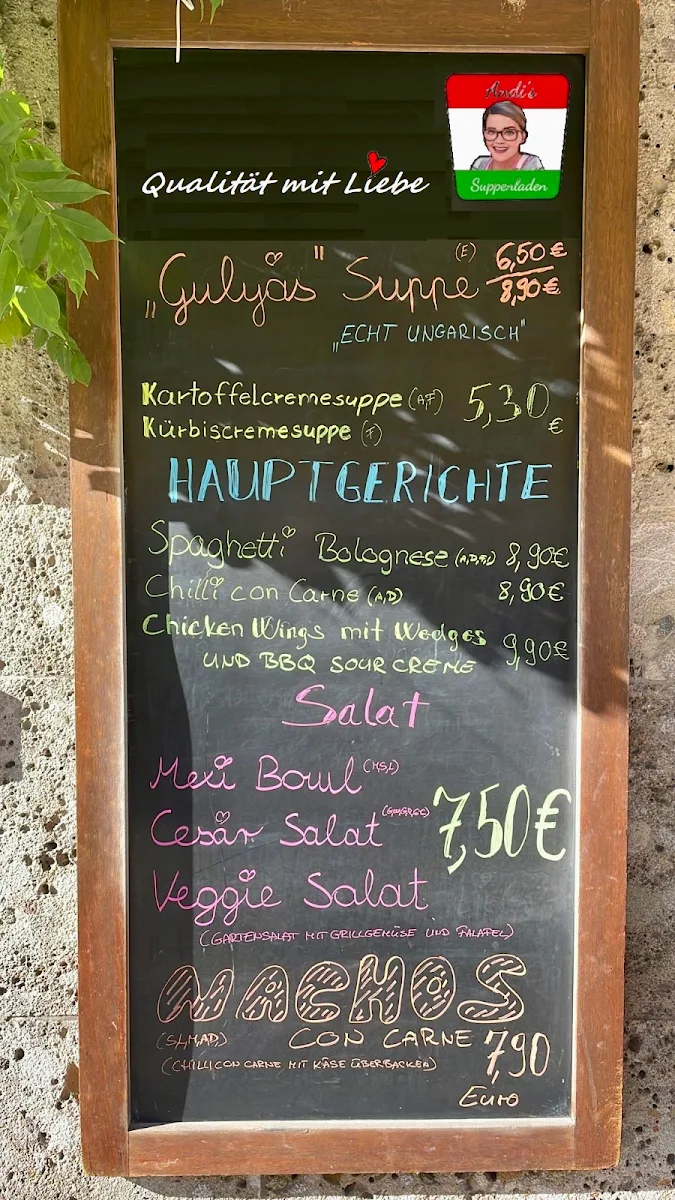 Andi's
Suppenladen
Qualität mit Liebe
„Gulyás" Suppe (E) 6,50 €
8,90 €
„ECHT UNGARISCH"
Kartoffelcremesuppe (A,F) 5,30 €
Kürbiscremesuppe (F)
HAUPTGERICHTE
Spaghetti Bolognese 8,90€
Chilli con Carne (A,D) 8,90€
Chicken Wings mit Wedges 9,90€
UND BBQ SOUR CREME
Salat
Mexi Bowl
Cesar Salat 7,50€
Veggie Salat
(GARTENSALAT MIT GRILLGEMÜSE UND FALAFEL)
NACHOS
CON CARNE 7,90
(CHILLI CON CARNE MIT KÄSE ÜBERBACKEN)
Euro